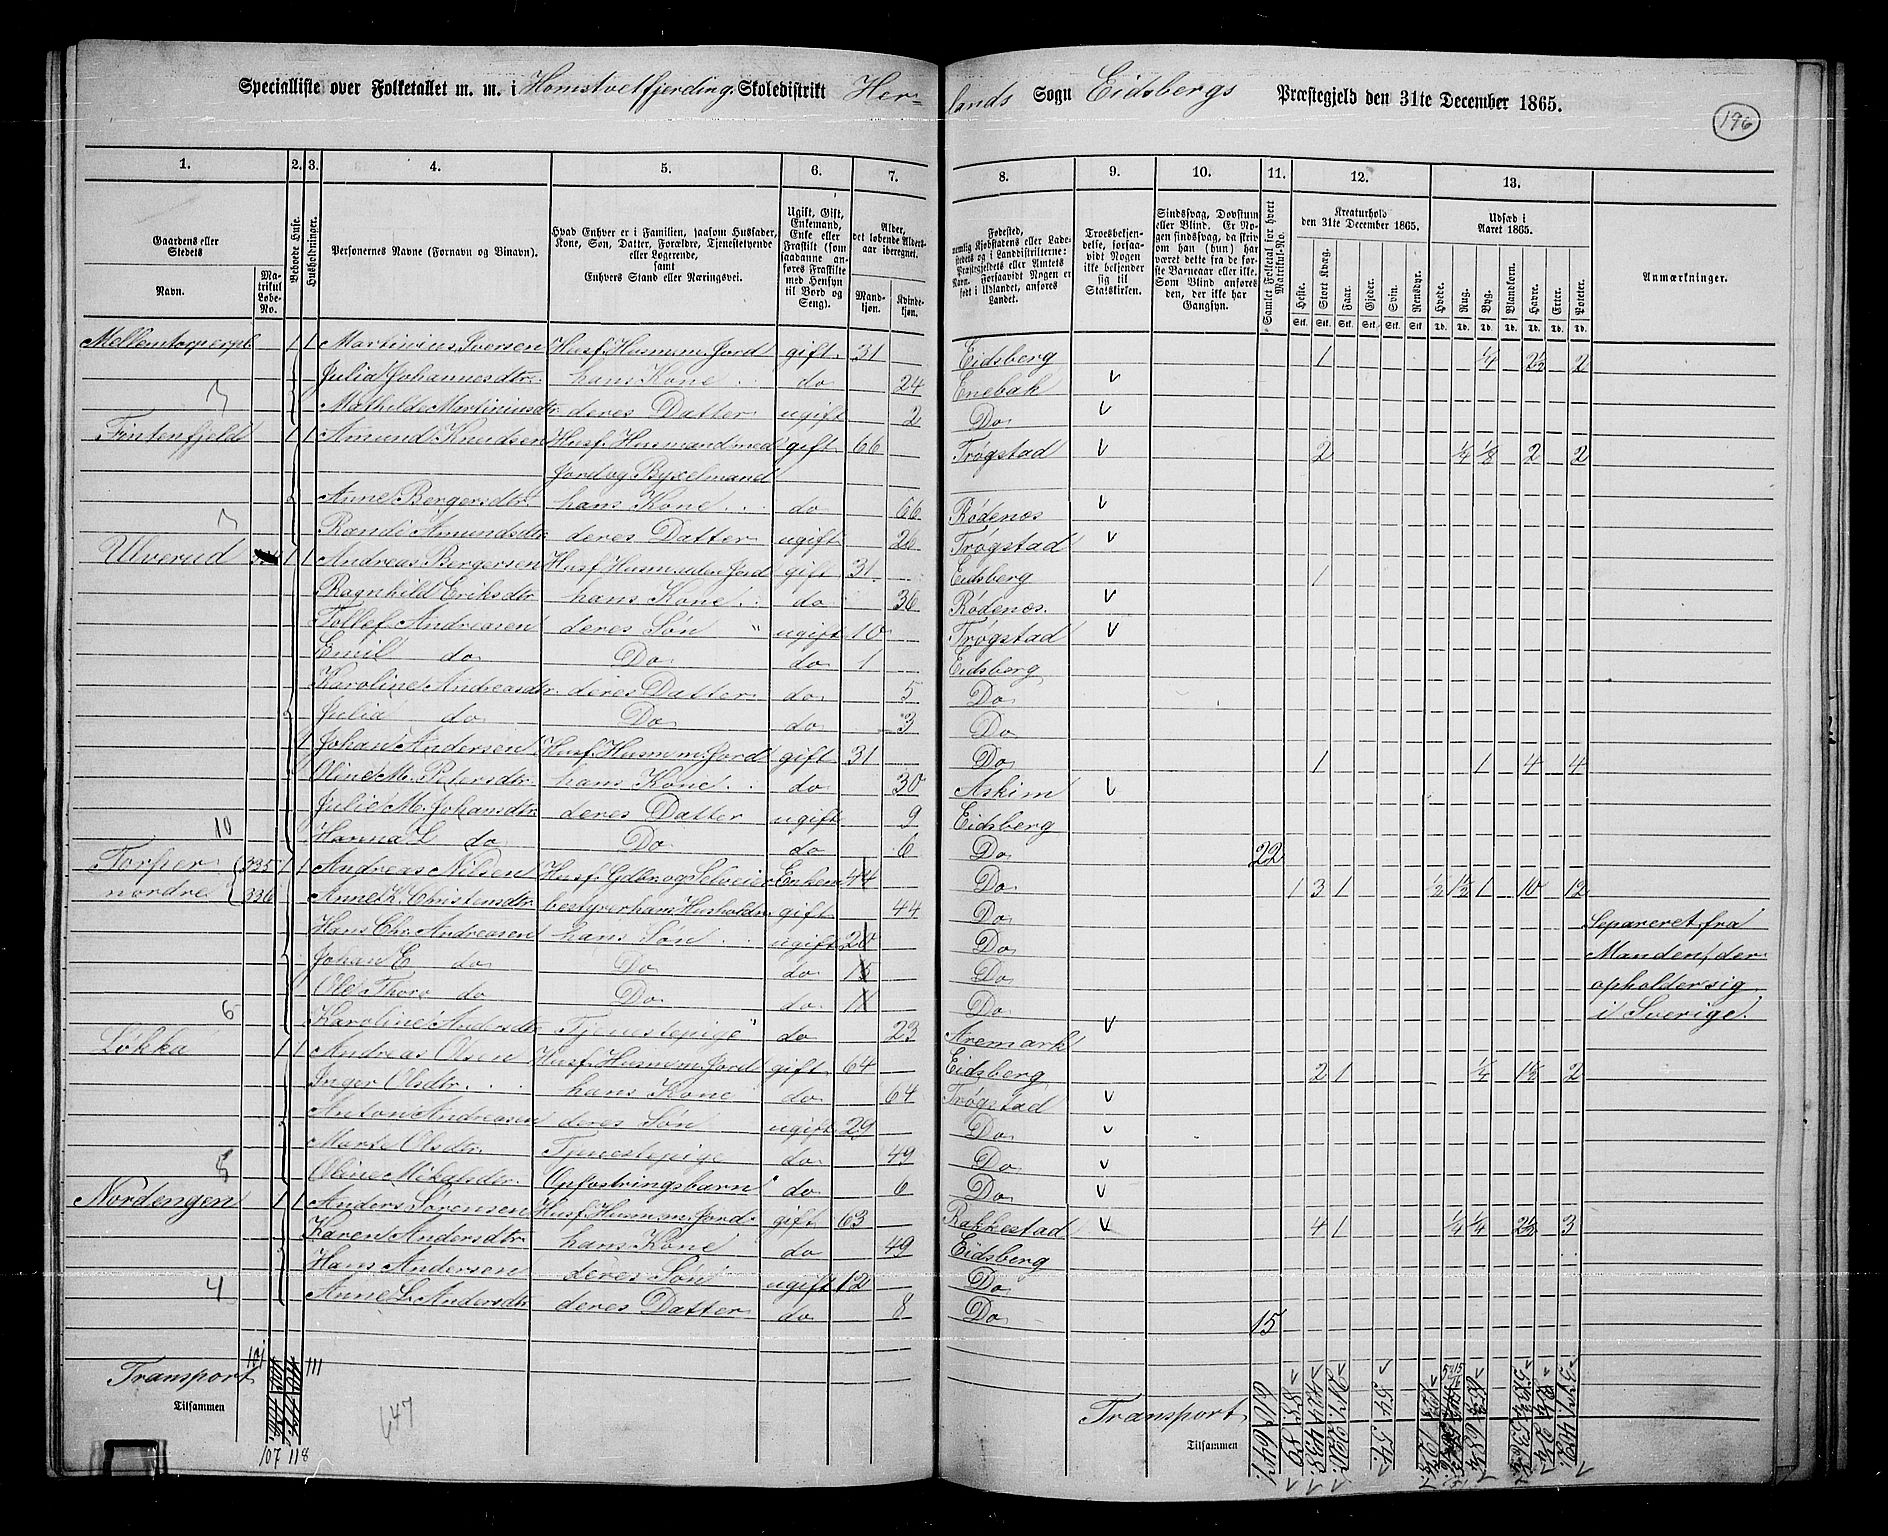 Specialliste over Folketallet m. m. i Homstvetfjerding Skoledistrikt Her-
lands Sogn Eidsbergs Præstegjeld den 31te December 1865.
196
1. 2. 3. 4. 5. 6. 7. 8. 9. 10. 11. 12. 13.
Gaardens eller Stedets Navn.
Matrikul Løbe-No.
Beboede Huse.
Husholdninger.
Personernes Navne (Fornavn og Binavn).
Hvad Enhver er i Familien, saasom Husfader, Kone, Søn, Datter, Forældre, Tjenestetyende eller Logerende, samt Enhvers Stand eller Næringsvei.
Ugift, Gift, Enkemand, Enke eller Fraskilt (som saadanne anføres Fraskilte med Hensyn til Bord og Seng).
Alder, det løbende Alders-aar iberegnet.
Mandkjøn. Kvindekjøn.
Fødested,
Troesbekjendelse, forsaavidt Nogen ikke bekjender sig til Statskirken.
Sindssvag, Døvstum eller Blind.
Samlet Folketal for hvert Matrikul-No.
Kreaturhold den 31te December 1865.
Heste. Stort Kvæg. Faar. Gjeder. Svin. Rensdyr.
Udsæd i Aaret 1865.
Hvede. Rug. Byg. Blandkorn. Havre. Erter. Poteter.
Anmærkninger.
Mellemtorperpl 1 1 Martinius Iversen Husf. Husm. m. Jord gift 31 Eidsberg 1 ¼ 2½ 2
Julia Johannesdtr. hans Kone do 24 Enebak
3 Mathilde Martiniusdtr. deres Datter ugift 2 Do
Fintenfjeld 1 1 Amund Knudsen Husf. Husmand med gift 66 Trøgstad 2 ¼ ⅛ 2 2
Jord og Byxelmand
Anne Bergersdtr. hans Kone do 66 Rødenes
3 Randi Amundsdtr deres Datter ugift 26 Trøgstad
Ulverud 1 1 Andreas Bergersen Husf. Husm. uden Jord gift 31 Eidsberg 1
Ragnhild Eriksdtr hans Kone do 36 Rødenes.
Tollef Andreasen deres Søn ugift 10 Trøgstad
Emil do Do do 1 Eidsberg
Karoline Andreasdtr. deres Datter do 5 Do
Julia do Do do 3 Do
Johan Andersen Husf. Husm. m. Jord gift 31 Do 1 1 4 4
Oline M. Petersdtr. hans Kone do 30 Askim
Julie M. Johansdtr. deres Datter ugift 9 Eidsberg
10 Hanna L. do Do do 6 Do 22
Torper 335 1 1 Andreas Nilsen Husf. Gdbr. og Selveier Enkem 44 Do 1 3 1 ½ 1½ 1 10 12
nordre 336 Anne K. Christensdtr. bestyrer hans Husholdn. gift 44 Do Separeret fra
Hans Chr. Andreasen hans Søn ugift 20 Do Manden, der
Johan E do Do do 15 Do opholder sig
Ole Thoro do Do do 11 Do i Sverige.
6 Karoline Andersdtr Tjenestepige do 23 Aremark
Løkka 1 1 Andreas Olsen Husf. Husm. m. Jord gift 64 Eidsberg 2 1 ½ 1½ 2
Inger Olsdtr. hans Kone do 64 Trøgstad
Anton Andreasen deres Søn ugift 29 Do
Marte Olsdtr. Tjenestepige do 49 Do
5 Oline Mikalsdtr. Opfostringsbarn do 6 Do
Nordengen 1 1 Anders Sørensen Husf. Husm. m. Jord gift 63 Rakkestad 4 1 ¼ ¼ 2½ 3
Karen Andersdtr. hans Kone do 49 Eidsberg
Hans Andersen deres Søn ugift 12 Do
4 Anne L. Andersdtr. deres Datter do 8 Do 15
Transport 101 111
Tilsammen 107 118
647
Transport
Tilsammen